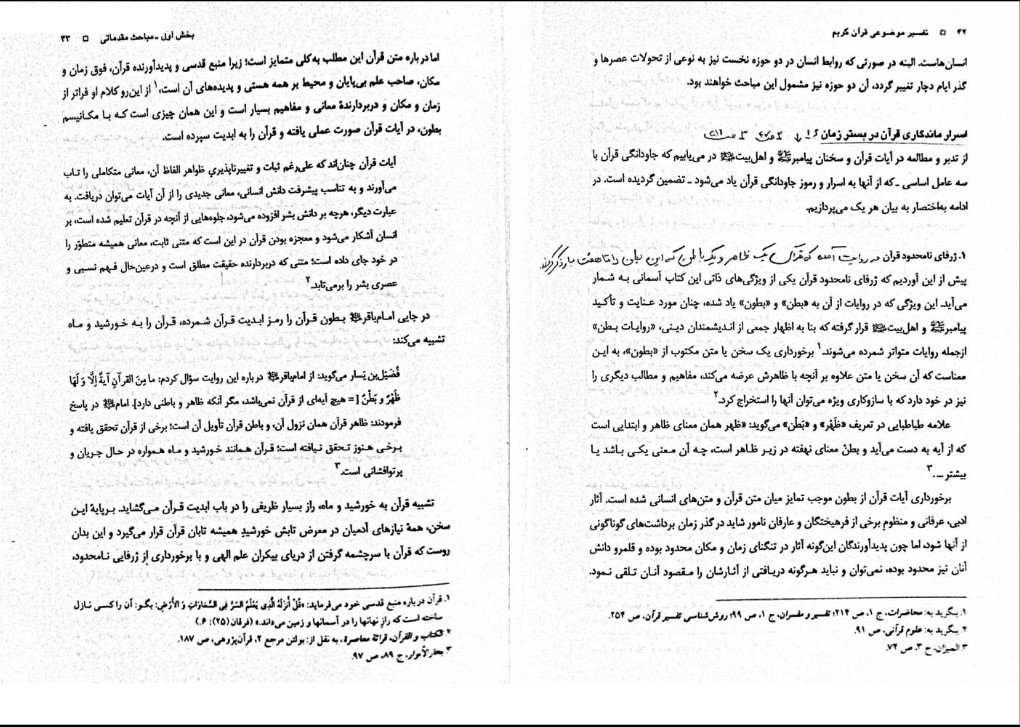 ۴۲ □ تفسیر موضوعی قرآن کریم
انسان‌هاست. البته در صورتی که روابط انسان در دو حوزه نخست نیز به نوعی از تحولات عصرها و
گذر ایام دچار تغییر گردد، آن دو حوزه نیز مشمول این مباحث خواهند بود.
اسرار ماندگاری قرآن در بستر زمان
از تدبر و مطالعه در آیات قرآن و سخنان پیامبرﷺ و اهل‌بیت﷩ در می‌یابیم که جاودانگی قرآن با
سه عامل اساسی ـ که از آنها به اسرار و رموز جاودانگی قرآن یاد می‌شود ـ تضمین گردیده است. در
ادامه به‌اختصار به بیان هر یک می‌پردازیم.
۱. ژرفای نامحدود قرآن در روایت آمده که قرآن یک ظاهر و یک باطن که این را تا هفت بار ذکر کردند
پیش از این آوردیم که ژرفای نامحدود قرآن یکی از ویژگی‌های ذاتی این کتاب آسمانی به شمار
می‌آید. این ویژگی که در روایات از آن به «بطن» و «بطون» یاد شده، چنان مورد عنایت و تأکید
پیامبرﷺ و اهل‌بیت﷩ قرار گرفته که بنا به اظهار جمعی از اندیشمندان دینی، «روایات بطن»
ازجمله روایات متواتر شمرده می‌شوند.۱ برخورداری یک سخن یا متن مکتوب از «بطون»، به این
معناست که آن سخن یا متن علاوه بر آنچه با ظاهرش عرضه می‌کند، مفاهیم و مطالب دیگری را
نیز در خود دارد که با سازوکاری ویژه می‌توان آنها را استخراج کرد.۲
علامه طباطبایی در تعریف «ظَهْر» و «بَطن» می‌گوید: «ظهر همان معنای ظاهر و ابتدایی است
که از آیه به دست می‌آید و بطنْ معنای نهفته در زیر ظاهر است، چه آن معنی یکی باشد یا
بیشتر ... .۳
برخورداری آیات قرآن از بطون موجب تمایز میان متن قرآن و متن‌های انسانی شده است. آثار
ادبی، عرفانی و منظوم برخی از فرهیختگان و عارفان نامور شاید در گذر زمان برداشت‌های گوناگونی
از آنها شود، اما چون پدیدآورندگان این‌گونه آثار در تنگنای زمان و مکان محدود بوده و قلمرو دانش
آنان نیز محدود بوده، نمی‌توان و نباید هرگونه دریافتی از آثارشان را مقصود آنان تلقی نمود.
۱. بنگرید به: محاضرات، ج ۱، ص ۲۱۴؛ تفسیر و مفسران، ج ۱، ص ۹۹؛ روش‌شناسی تفسیر قرآن، ص ۲۵۴.
۲. بنگرید به: علوم قرآنی، ص ۹۱.
۳. المیزان، ج ۳، ص ۷۴.
بخش اول ـ مباحث مقدماتی □ ۴۳
اما درباره متن قرآن این مطلب به‌کلی متمایز است؛ زیرا منبع قدسی و پدیدآورنده قرآن، فوق زمان و
مکان، صاحب علم بی‌پایان و محیط بر همه هستی و پدیده‌های آن است.۱ از این‌رو کلام او فراتر از
زمان و مکان و دربردارندهٔ معانی و مفاهیم بسیار است و این همان چیزی است که با مکانیسم
بطون، در آیات قرآن صورت عملی یافته و قرآن را به ابدیت سپرده است.
آیات قرآن چنان‌اند که علی‌رغم ثبات و تغییرناپذیریِ ظواهر الفاظ آن، معانی متکاملی را تاب
می‌آورند و به تناسب پیشرفت دانش انسانی، معانی جدیدی را از آن آیات می‌توان دریافت. به
عبارت دیگر، هرچه بر دانش بشر افزوده می‌شود، جلوه‌هایی از آنچه در قرآن تعلیم شده است، بر
انسان آشکار می‌شود و معجزه بودن قرآن در این است که متنی ثابت، معانی همیشه متطوّر را
در خود جای داده است؛ متنی که دربردارنده حقیقت مطلق است و درعین‌حال فهم نسبی و
عصری بشر را برمی‌تابد.۲
در جایی امام‌باقر﷤ بطون قرآن را رمز ابدیت قرآن شمرده، قرآن را به خورشید و ماه
تشبیه می‌کند:
فُضَیْل‌بن یَسار می‌گوید: از امام‌باقر﷤ درباره این روایت سؤال کردم: ما مِنَ القرآنِ آیةٌ اِلّا وَ لَهَا
ظَهْرٌ وَ بَطْنٌ [= هیچ آیه‌ای از قرآن نمی‌باشد، مگر آنکه ظاهر و باطنی دارد]. امام﷤ در پاسخ
فرمودند: ظاهر قرآن همان نزول آن، و باطن قرآن تأویل آن است؛ برخی از قرآن تحقق یافته و
برخی هنوز تحقق نیافته است؛ قرآن همانند خورشید و ماه همواره در حال جریان و
پرتوافشانی است.۳
تشبیه قرآن به خورشید و ماه، راز بسیار ظریفی را در باب ابدیت قرآن می‌گشاید. برپایهٔ این
سخن، همهٔ نیازهای آدمیان در معرض تابش خورشیدِ همیشه تابان قرآن قرار می‌گیرد و این بدان
روست که قرآن با سرچشمه گرفتن از دریای بیکران علم الهی و با برخورداری از ژرفایی نامحدود،
۱. قرآن درباره منبع قدسی خود می‌فرماید: «قُلْ أَنزَلَهُ الَّذِی یَعْلَمُ السِّرَّ فِی السَّمَاوَاتِ وَ الْأَرْضِ؛ بگو: آن را کسی نازل
ساخته است که رازِ نهانها را در آسمانها و زمین می‌داند.» (فرقان (۲۵): ۶.)
۲. الکتاب و القرآن، قرائة معاصرة، به نقل از: بولتن مرجع ۲، قرآن‌پژوهی، ص ۱۸۷.
۳. بحارالأنوار، ج ۸۹، ص ۹۷.